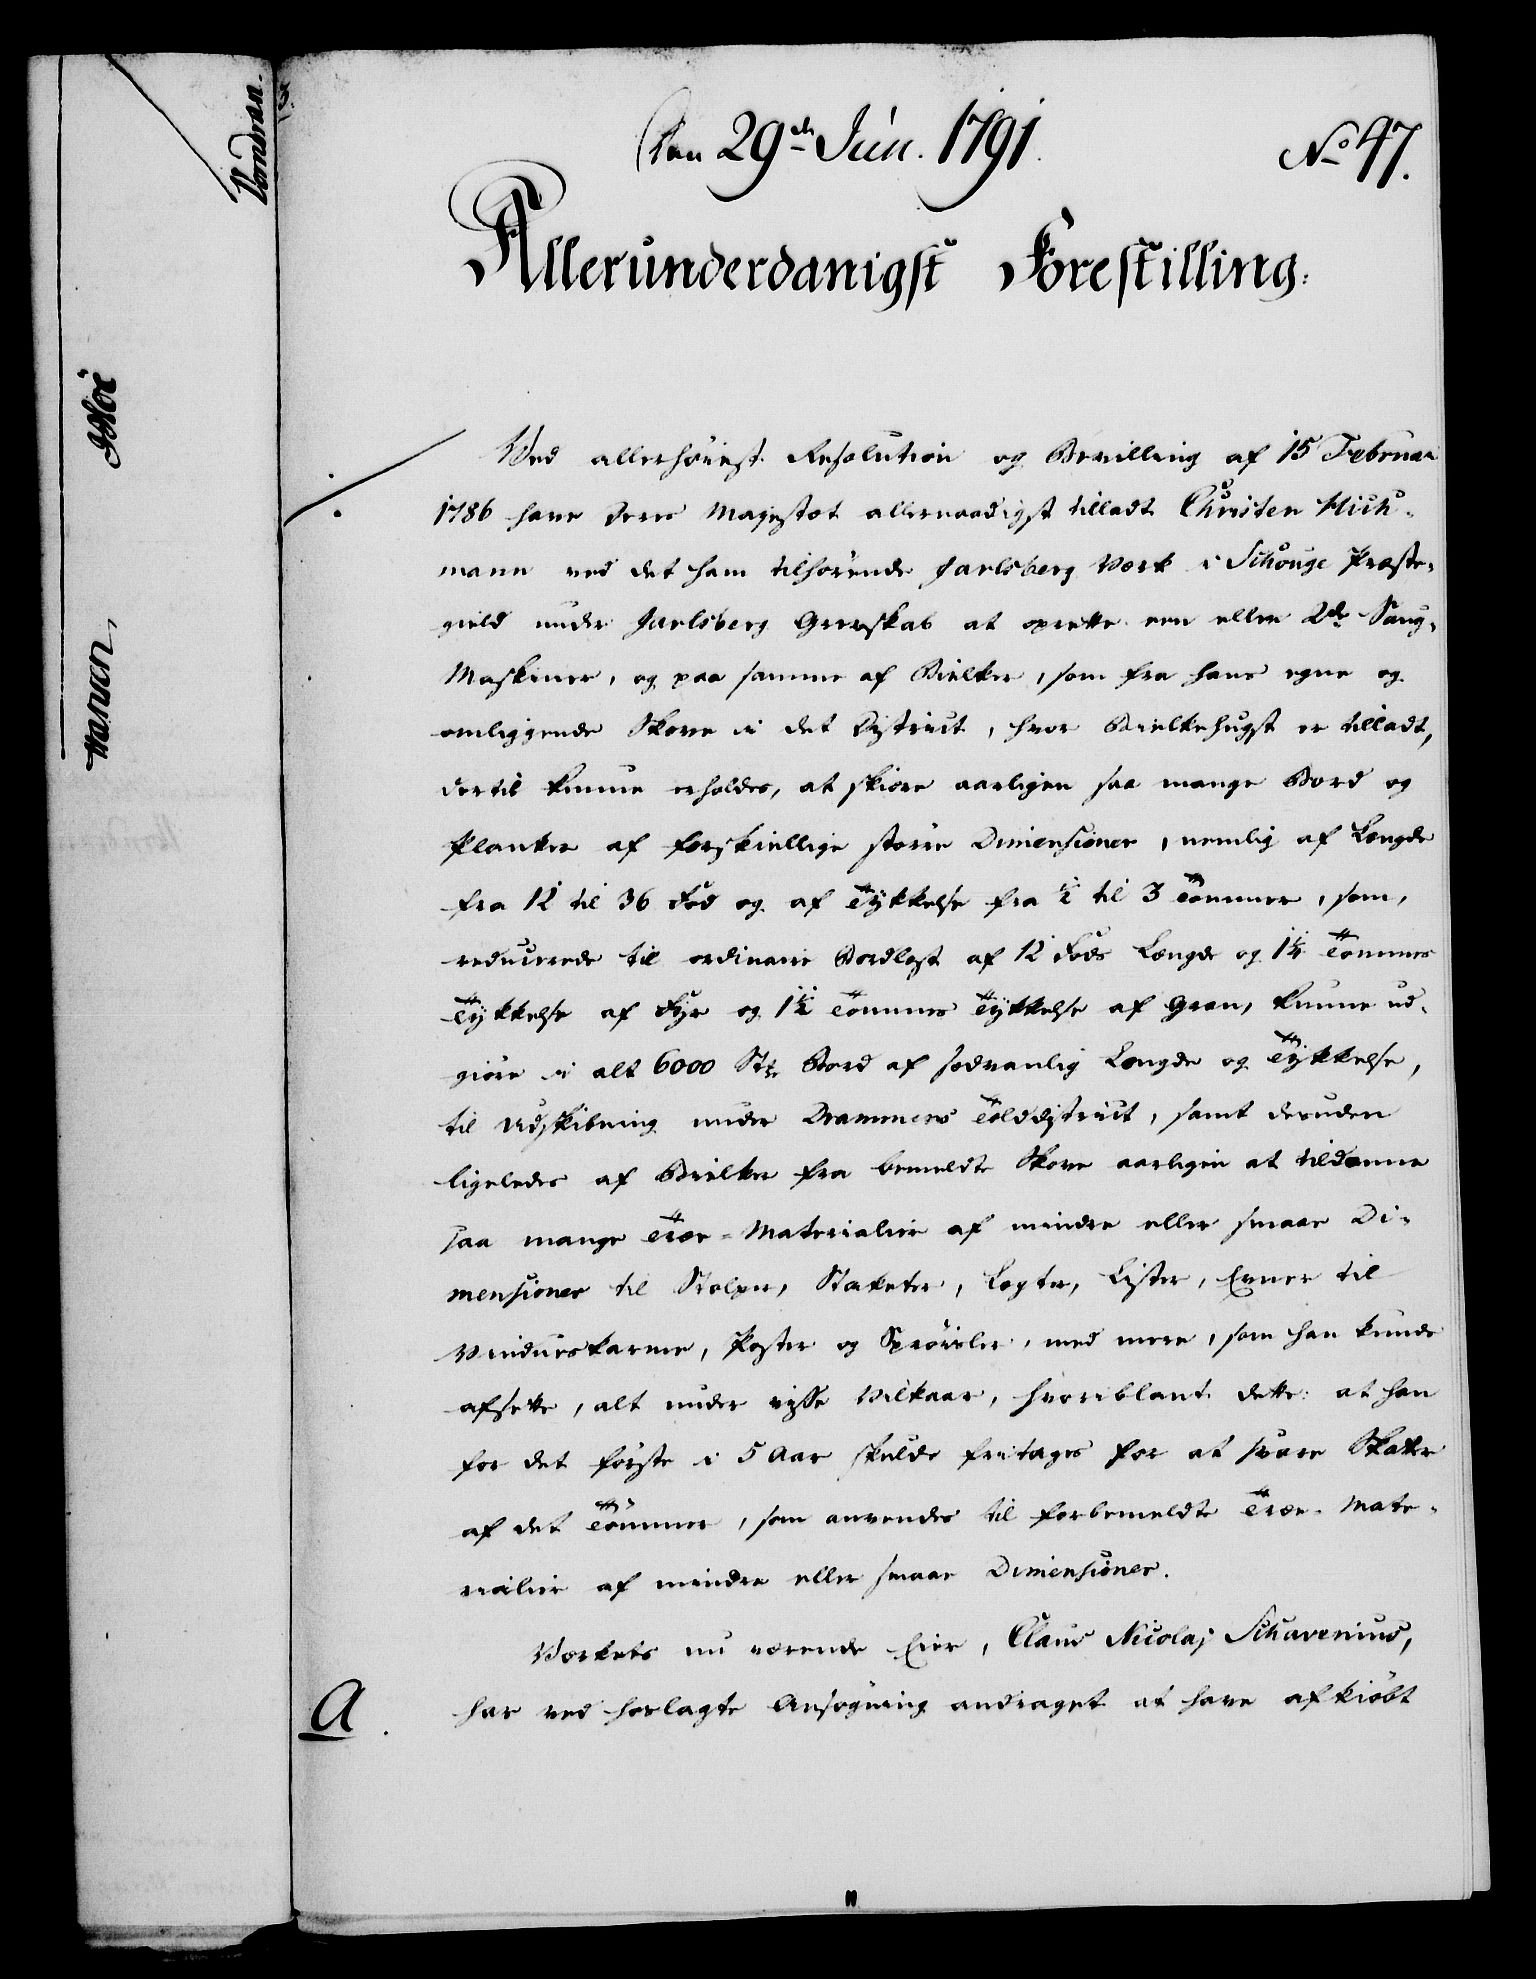 Den 29de Jun. 1791.
No 47.
Allerunderdanigst Forestilling.
Ved allerhøiest Resolution og Bevilling af 15 Februar
1786 have Deres Majestæt allernaadigst tilladt Christen Hich-
mann ved det ham tilhørende Jarlsberg Værk i Schouge Præste-
gield under Jarlsberg Grevskab at oprette een eller 2de Saug-
Maskiner, og paa samme af Bielker, som fra hans egne og
omliggende Skove i det District, hvor Bielkehugst er tilladt,
dertil kunne erholdes, at skiære aarligen saa mange Bord og
Planker af forskiellige større Dimensioner, nemlig af Længde
fra 12 til 36 Fod og af Tykkelse fra ½ til 3 Tommer, som,
reducerede til ordinaire Bordlast af 12 Fods Længde og 1¼ Tommes
Tykkelse af Fyr og 1½ Tommes Tykkelse af Gran, kunne ud-
giøre i alt 6000 Stk Bord af sædvanlig Længde og Tykkelse,
til Udskibning under Drammens Tolddistrict, samt desuden
ligeledes af Bielker fra bemeldte Skove aarligen at tildanne
saa mange Træe-Materialier af mindre eller smaae Di-
mensioner til Stolper, Staketer, Lægter, Lister, Emner til
Vindueskarme, Poster og Sprøisler, med mere, som han kunde
afsette, alt under visse Vilkaar, hvoriblant dette: at han
for det første i 5 Aar skulde fritages for at svare Skatter
af det Tømmer, som anvendes til forbemeldte Træe-Mate-
rialier af mindre eller smaae Dimensioner.
Værkets nu værende Eier, Claus Nicolaj Schavenius,
A.
har ved herlagte Ansøgning andraget at have afkiøbt